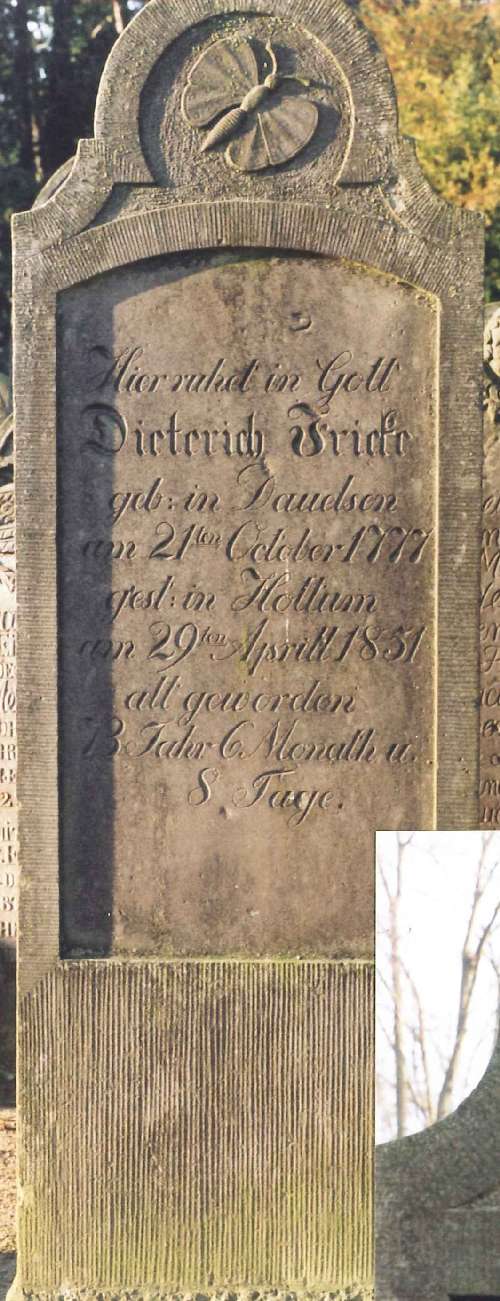 Hier ruhet in Gott
Dieterich Fricke
geb: in Dauelsen
am 21ten October 1777
gest: in Holtum
am 29ten Aprill 1851
alt geworden
73 Jahr 6 Monath u.
8 Tage.